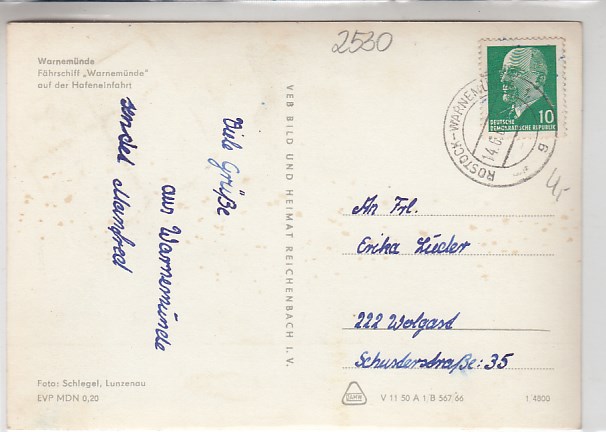 2530
Warnemünde
Fährschiff „Warnemünde"
auf der Hafeneinfahrt
Viele Grüße
aus Warnemünde
sendet Manfred
VEB BILD UND HEIMAT REICHENBACH I. V.
10
DEUTSCHE
DEMOKRATISCHE REPUBLIK
ROSTOCK-WARNEMÜ
14.6.
4,-
An Frl.
Erika Lüder
222 Wolgast
Schusterstraße: 35
Foto: Schlegel, Lunzenau
EVP MDN 0,20
V 11 50 A 1/B 567/66
1. 4800